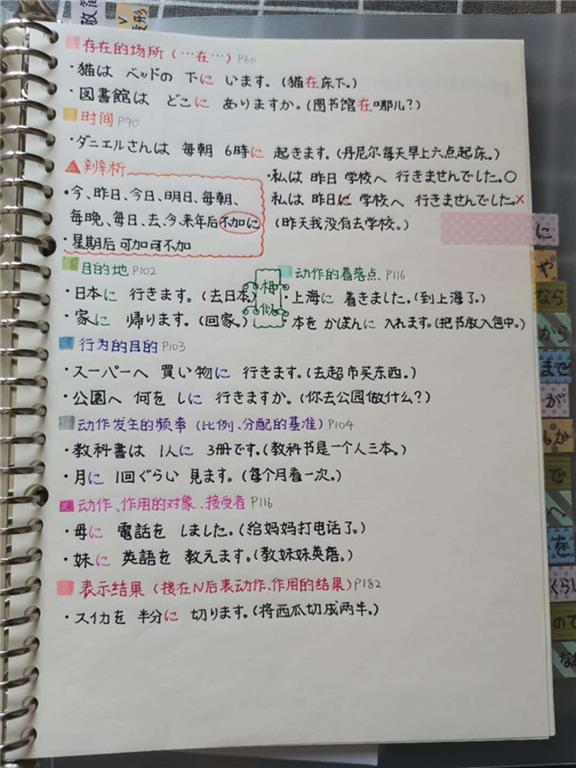 存在的场所(…在…)P60
・猫は ベッドの 下に います。(猫在床下。)
・図書館は どこに ありますか。(图书馆在哪儿?)
时间P90
・ダニエルさんは 毎朝 6時に 起きます。(丹尼尔每天早上六点起床。)
辨析
・今、昨日、今日、明日、毎朝、
毎晩、毎日、去、今、来年后不加に
・星期后可加可不加
・私は 昨日 学校へ 行きませんでした。○
私は 昨日に 学校へ 行きませんでした。×
(昨天我没有去学校。)
目的地P102
・日本に 行きます。(去日本)
・家に 帰ります。(回家。)
相似
动作的着落点、P116
・上海に 着きました。(到上海了。)
・本を かばんに 入れます。(把书放入包中。)
行为的目的P103
・スーパーへ 買い物に 行きます。(去超市买东西。)
・公園へ 何を しに 行きますか。(你去公园做什么?)
动作发生的频率(比例、分配的基准)P104
・教科書は 1人に 3冊です。(教科书是一个人三本。)
・月に 1回ぐらい 見ます。(每个月看一次。)
动作、作用的对象、接受者P116
・母に 電話を しました。(给妈妈打电话了。)
・妹に 英語を 教えます。(教妹妹英语。)
表示结果(接在N后表动作、作用的结果)P182
・スイカを 半分に 切ります。(将西瓜切成两半。)
に
や
なら
から
まで
が
しか
で
へ
を
くらい
ので